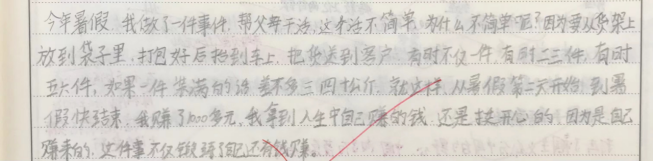 今年暑假,我做了一件事件,帮父母干活,这个活不简单,为什么不简单呢?因为要从货架上
放到袋子里,打包好后抬到车上,把货送到客户,有时不仅一件,有时二三件,有时
五六件,如果一件装满的话,差不多三四十公斤,就这样,从暑假第二天开始,到暑
假快结束,我赚了1000多元,我拿到人生中自己赚的钱,还是挺开心的,因为是自己
赚来的,这件事不仅锻练了自己还有钱赚。